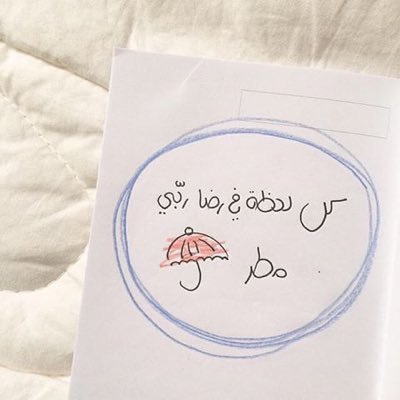 كل لحظة في رضا ربّي
مطر